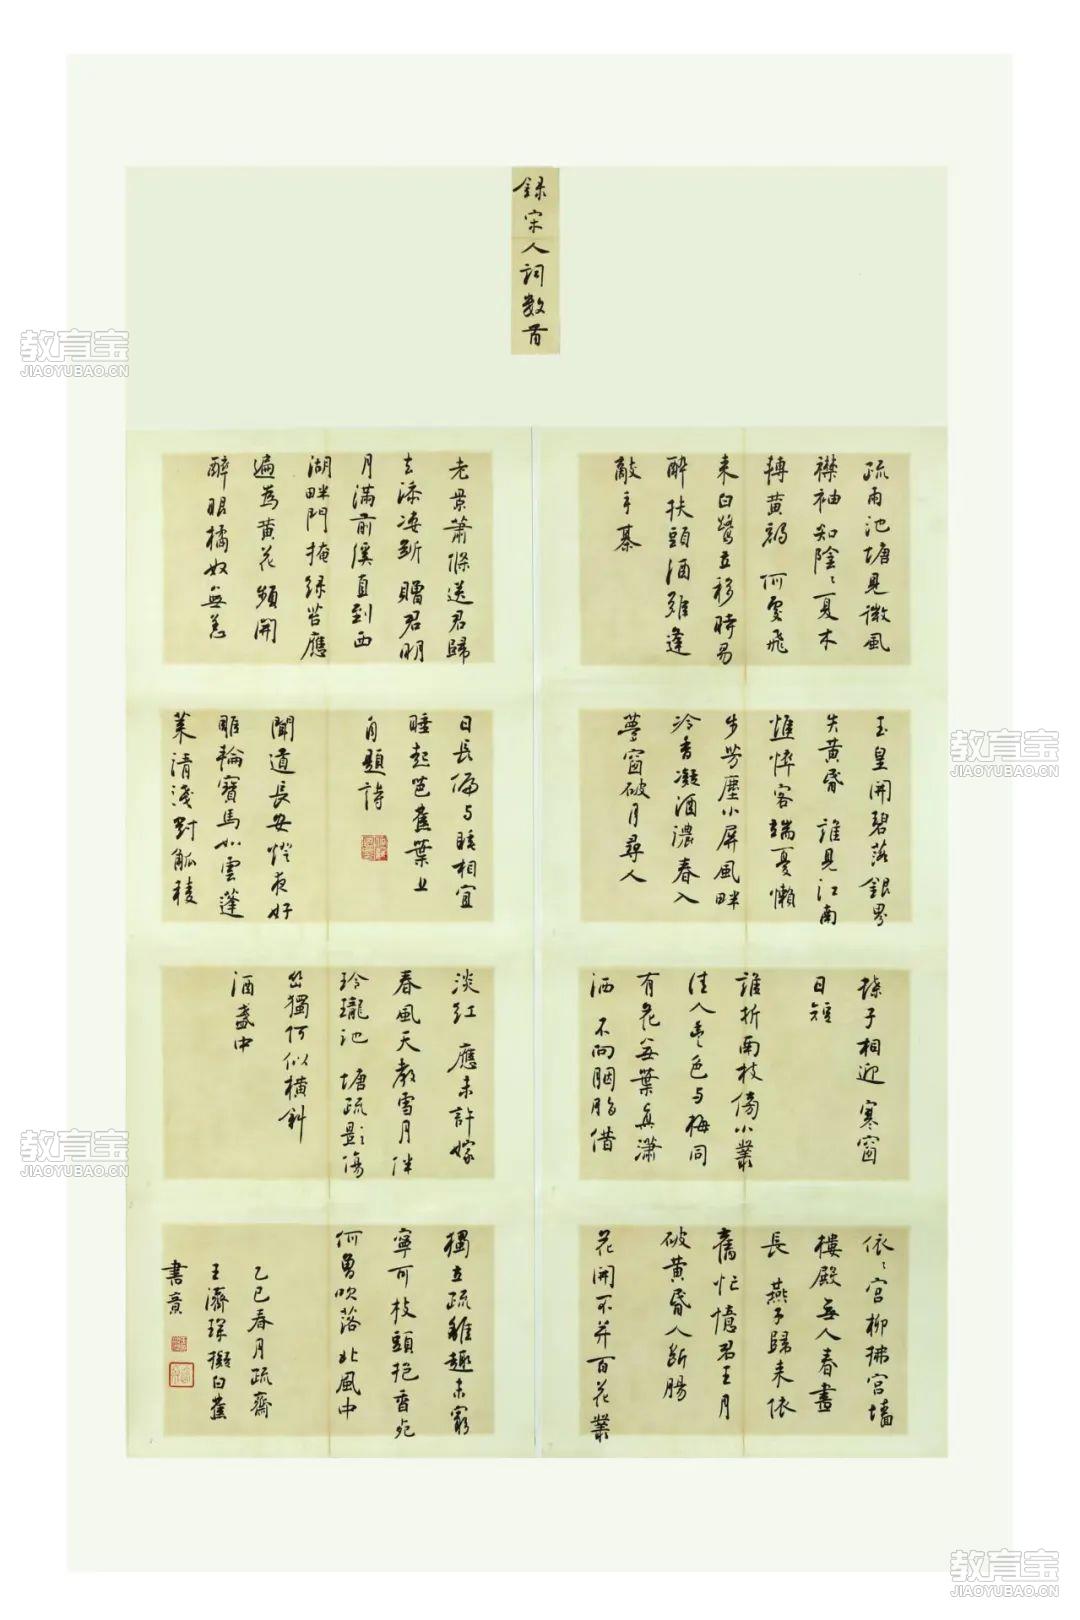 錄宋人詞數首
疏雨池塘見微風
襟袖知陰々夏木
轉黃鸝 何處飛
來白鷺立移時易
醉扶頭酒難逢
敵手棊
玉皇開碧落銀界
失黃昏 誰見江南
憔悴客端憂懶
步芳塵小屏風畔
冷香凝酒濃春入
夢窗破月尋人
搽子相迎 寒窗
日短
誰折南枝傍小叢
佳人丰色与梅同
有花無葉真瀟
洒 不向胭脂借
依々宮柳拂宮墻
樓殿無人春晝
長 燕子歸來依
舊忙憶君王月
破黃昏人斷腸
花開不并百花叢
老景蕭條送君歸
去添凄斷 贈君明
月滿前溪直到西
湖畔門掩綠苔應
遍為黃花頻開
醉眼橘奴無恙
日長偏与睡相宜
睡起芭蕉葉上
自題詩
聞道長安燈夜好
雕輪寶馬如雲蓬
萊清淺對觚稜
淡紅 應未許嫁
春風天教雪月伴
玲瓏池 塘疏影傷
幽獨何似橫斜
酒盞中
獨立疏籬趣未窮
寧可枝頭抱香死
何曾吹落北風中
乙巳春月疏齋
王濟琛擬白蕉
書意
教育宝
JIAOYUBAO.CN
教育宝
JIAOYUBAO.CN
教育宝
JIAOYUBAO.CN
教育宝
JIAOYUBAO.CN